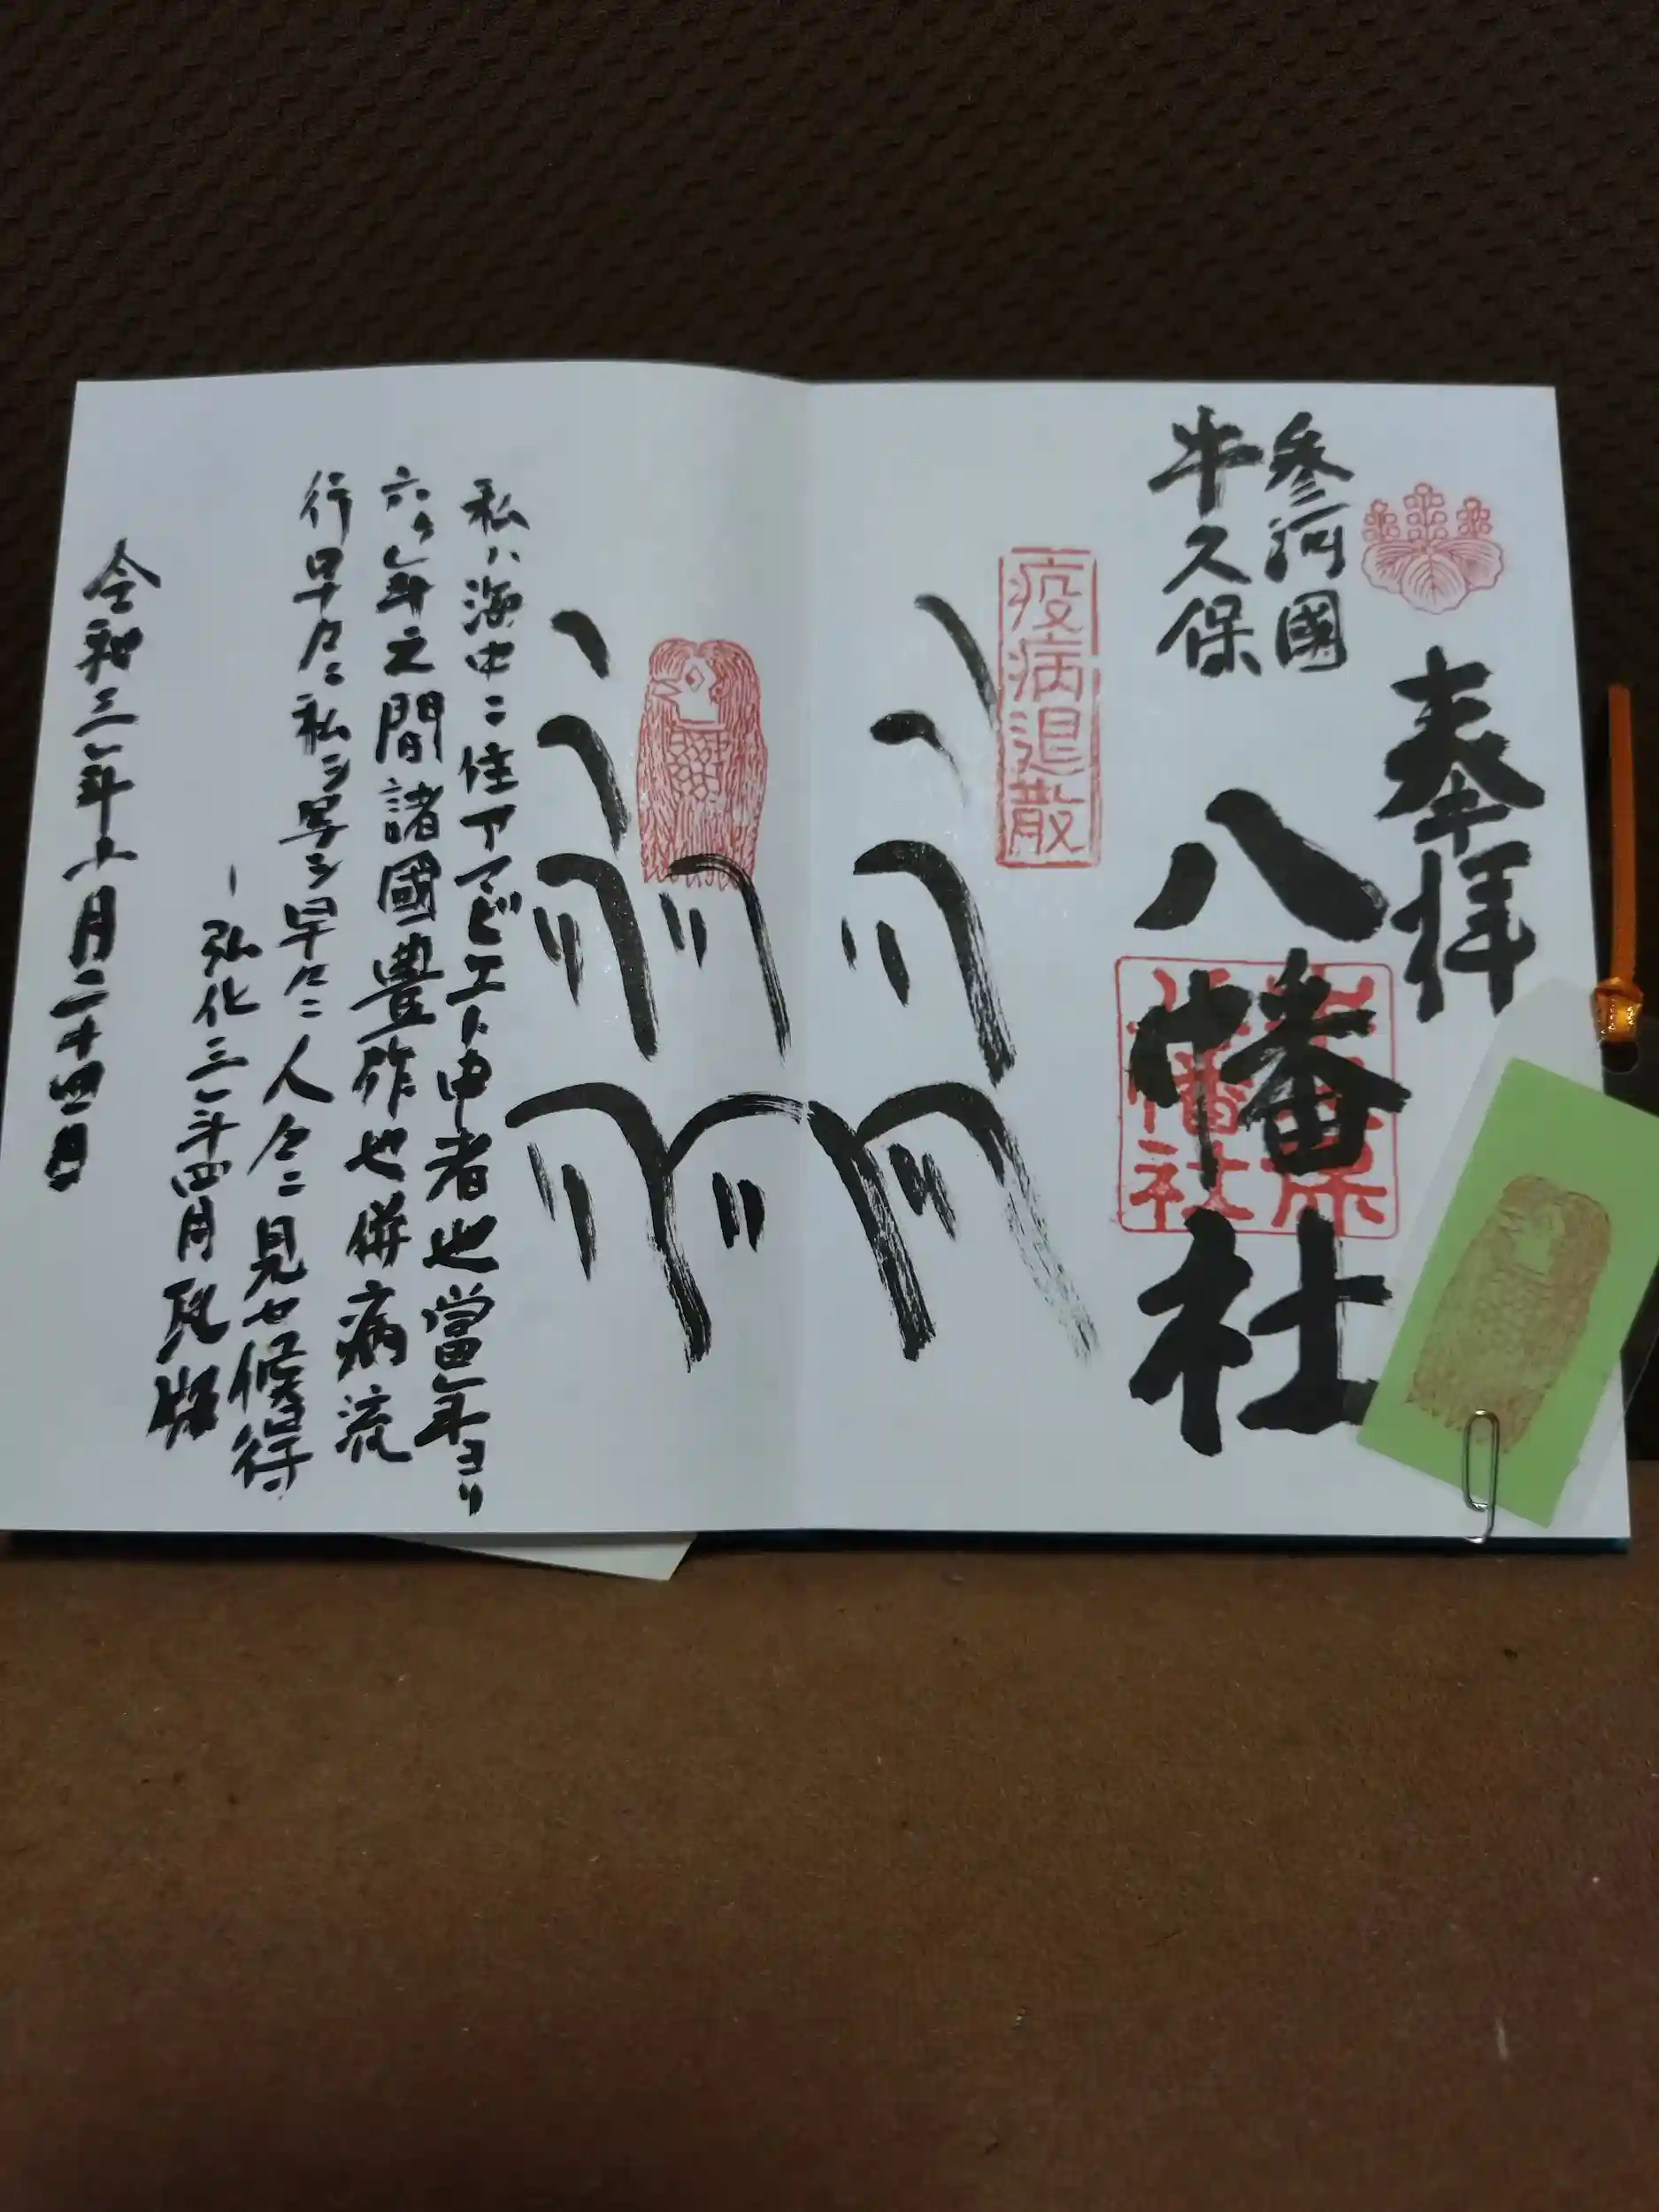 奉拝
參河國
牛久保
八幡社
疫病退散
私ハ海中ニ住アマビエト申者也當年ヨリ
六ヶ年之間諸國豊作也併病流
行早々ニ私シ写シ早々ニ人々ニ見セ候得
弘化三年四月瓦版
令和三年十月二十四日